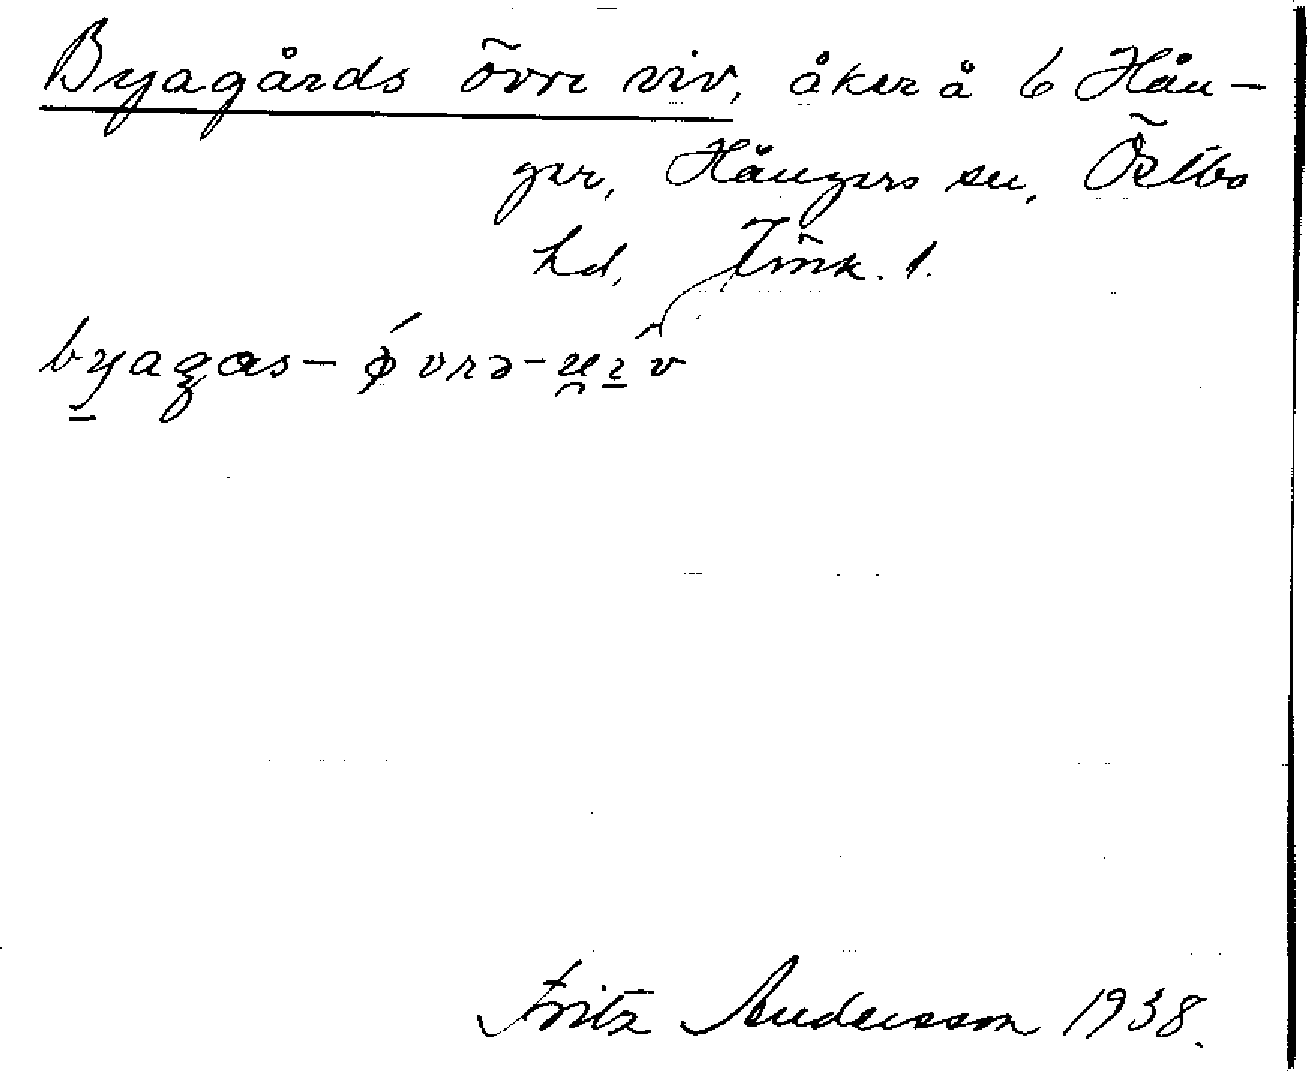 Byagårds övre viv, åker å 6 Hån-
ger, Hångers sn, Östbo
hd, Jönk. l.
byagas- ǿvrə-
Fritz Andersson 1938.